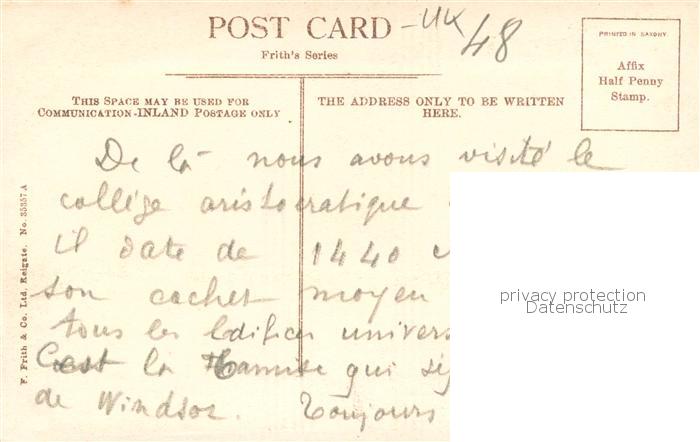 POST CARD -UK 48
Frith's Series
PRINTED IN SAXONY.
Affix
Half Penny
Stamp.
THIS SPACE MAY BE USED FOR
COMMUNICATION-INLAND POSTAGE ONLY
THE ADDRESS ONLY TO BE WRITTEN
HERE.
De là nous avons visité le
collège aristocratique
il date de 1440
son cachet moyen
tous les Edifices univers
C'est la Tamise qui
de Windsor. Toujours
privacy protection
Datenschutz
F. Frith & Co. Ltd. Reigate. No. 35357 A